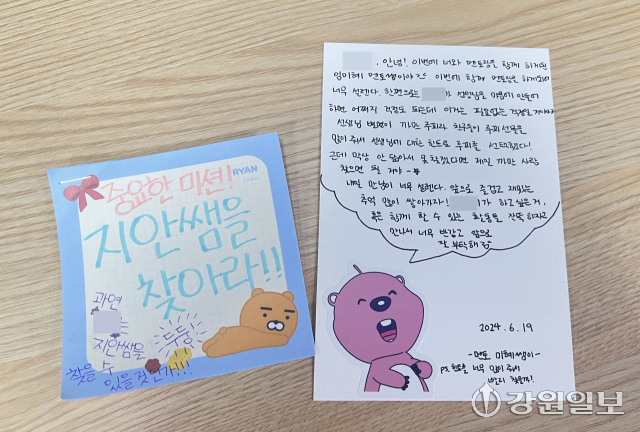 중요한 미션!
RYAN
지안쌤을
찾아라!!
과연
지안쌤을
두둥
찾을 수
있을 것인가!!!
, 안녕! 이번에 너와 멘토링을 함께 하게된
멘토쌤이야 이번에 함께 멘토링을 하게되어
너무 설렌다. 한편으로는 가 선생님을 마음에 안들어
하면 어쩌지 걱정도 되는데 이거는 필요없는 걱정일
선생님 별명이 까만 루피라 친구들이 루피 선물을
많이 줘서 선생님에 대한 힌트로 루피를 선택했다!
근데 막상 안 닮아서 못 찾겠다면 제일 까만 사람
찾으면 될 거야
내일 만남이 너무 설렌다. 앞으로 즐겁고 재밌는
추억 많이 쌓아가자! 가 하고 싶은 거,
혹은 함께 할 수 있는 활동들 잔뜩 하자고
만나서 너무 반갑고 앞으로
잘 부탁해
2024.6.19
-멘토 미혜쌤이-
ps. 힌트를 너무 많이 줘서
강원일보